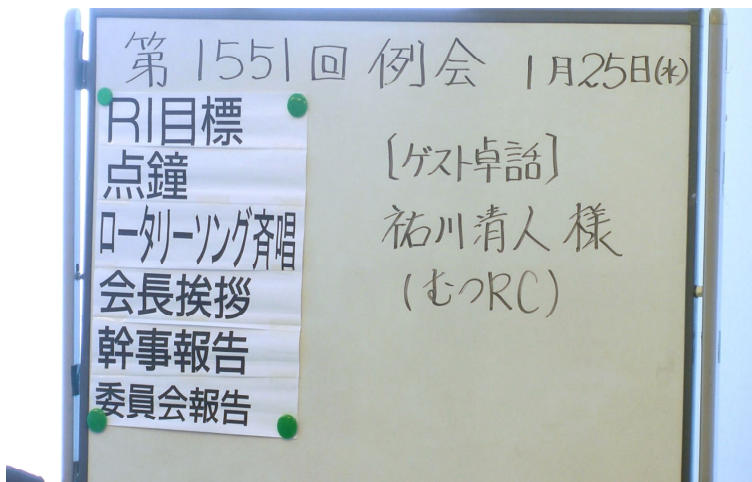 第1551回 例会 1月25日(水)
RI目標
点鐘
ロータリーソング斉唱
会長挨拶
幹事報告
委員会報告
[ゲスト卓話]
祐川清人 様
(むつRC)